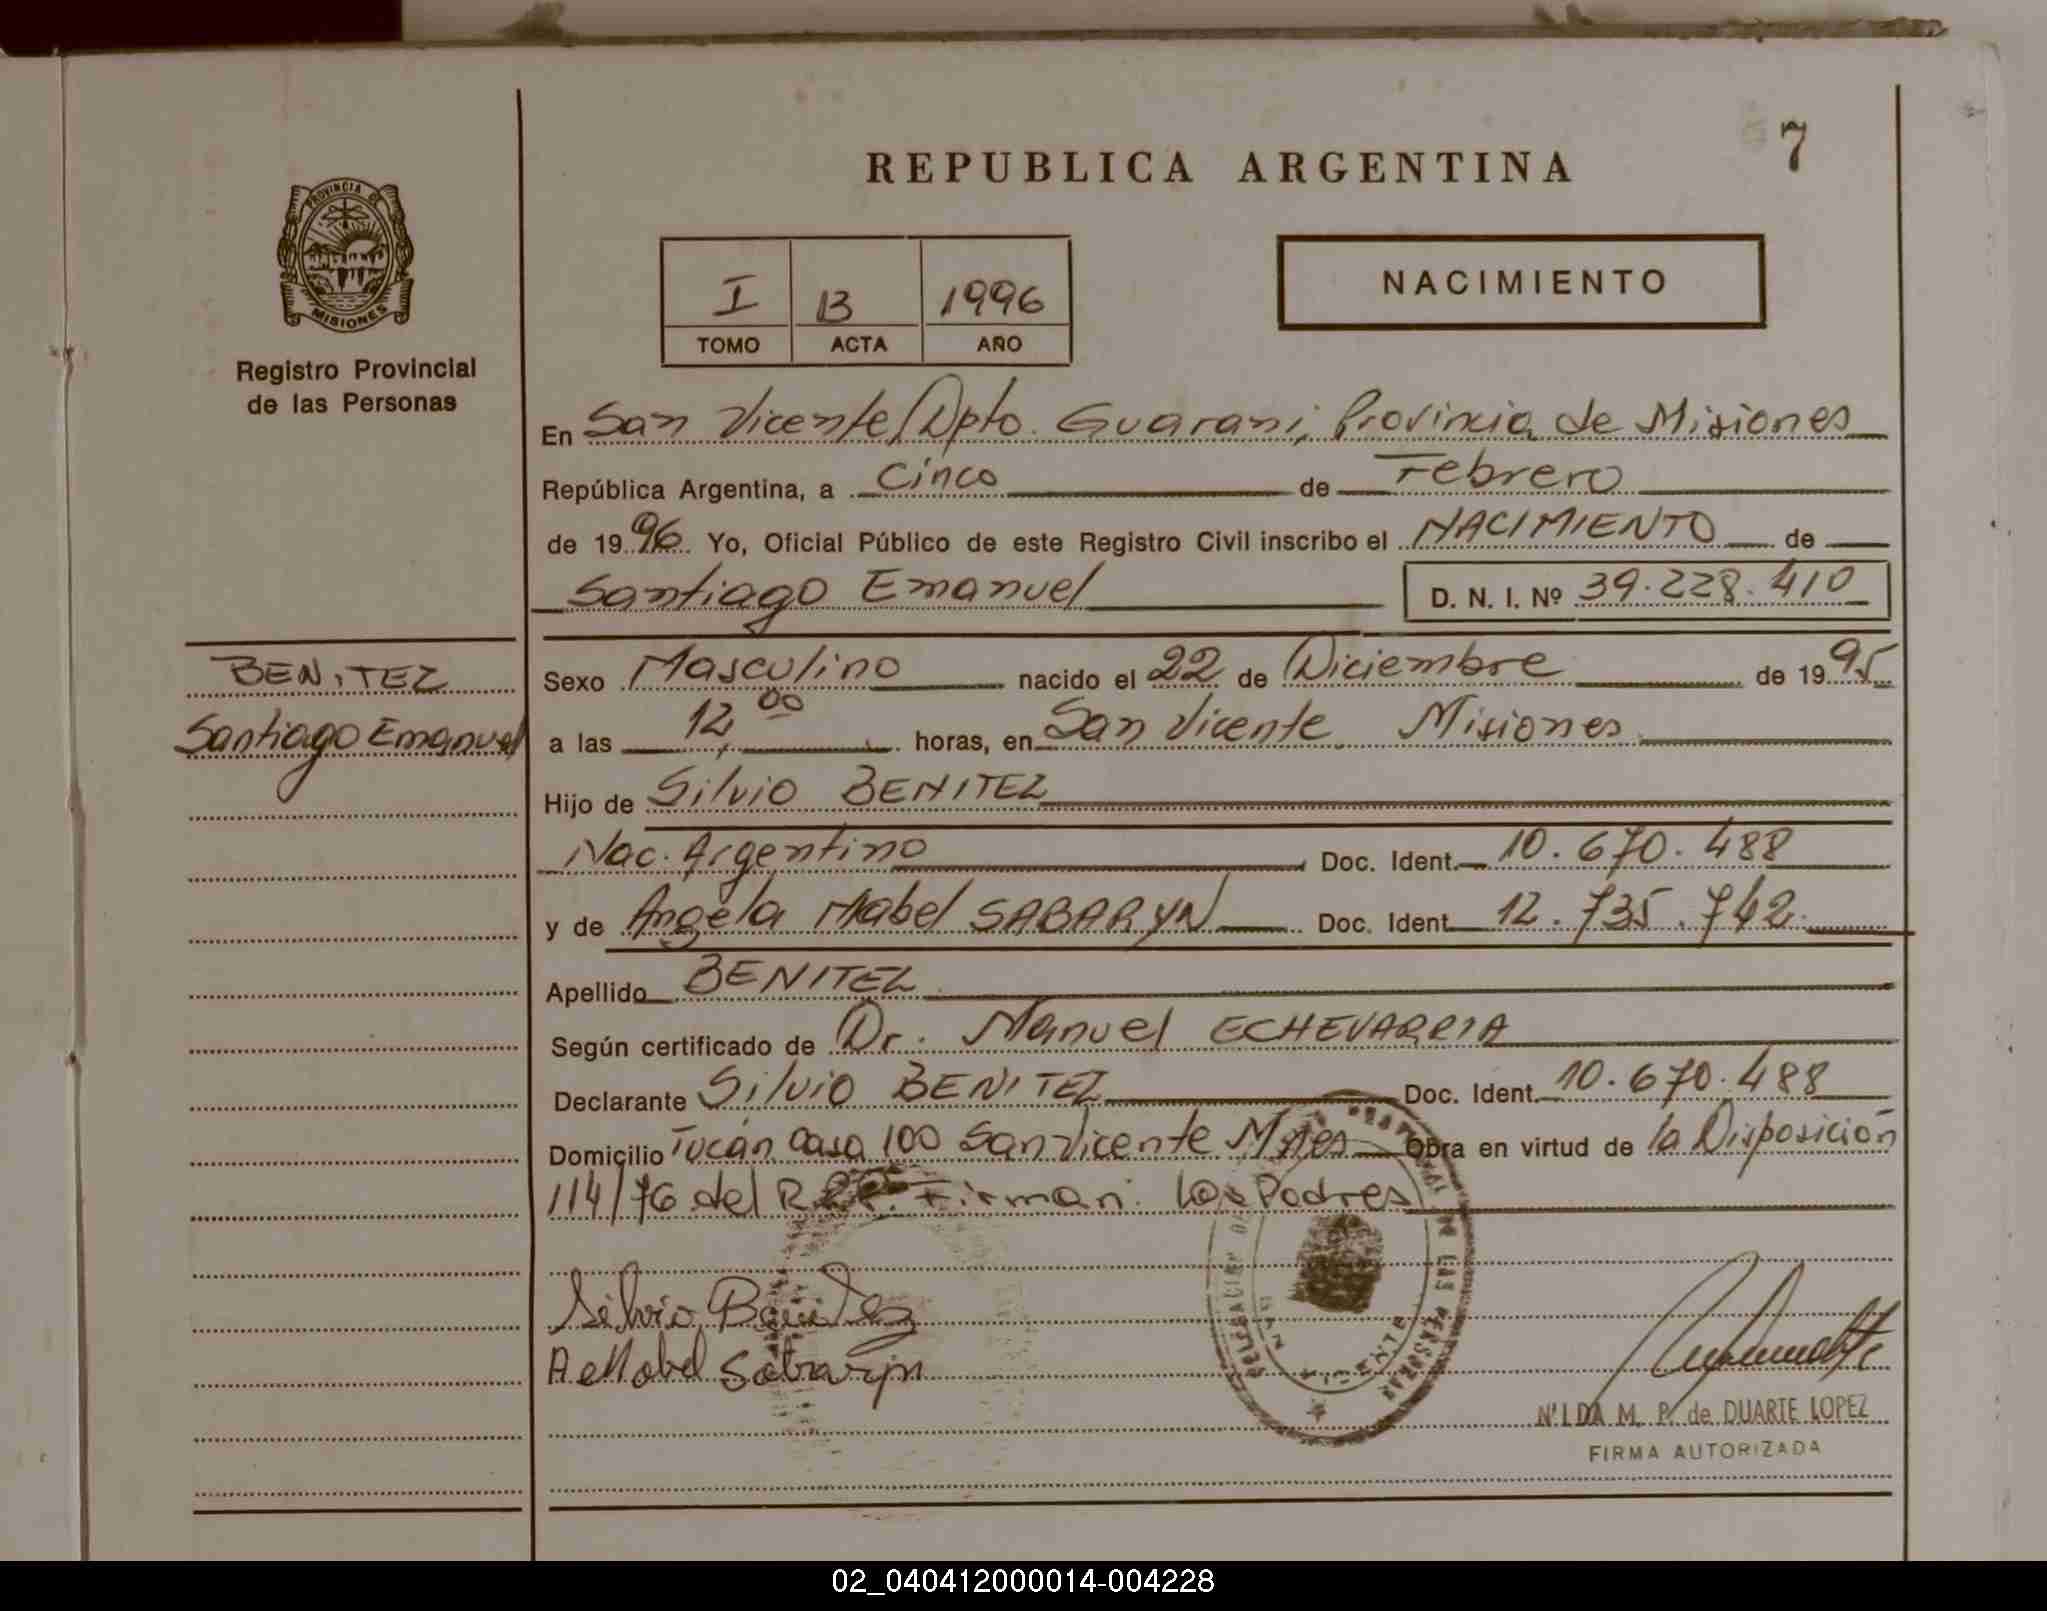 7
REPUBLICA ARGENTINA
PROVINCIA DE
MISIONES
Registro Provincial
de las Personas
I 13 1996
TOMO ACTA AÑO
NACIMIENTO
En San Vicente, Dpto. Guarani, Provincia de Misiones
República Argentina, a Cinco de Febrero
de 1996 Yo, Oficial Público de este Registro Civil inscribo el NACIMIENTO de
Santiago Emanuel D. N. I. Nº 39.228.410
BENITEZ
Santiago Emanuel
Sexo Masculino nacido el 22 de Diciembre de 1995
a las 12,00 horas, en San Vicente Misiones
Hijo de Silvio BENITEZ
Nac. Argentino Doc. Ident. 10.670.488
y de Angela Mabel SABARYN Doc. Ident 12.735.742
Apellido BENITEZ
Según certificado de Dr. Manuel ECHEVARRIA
Declarante Silvio BENITEZ Doc. Ident. 10.670.488
Domicilio Tucán Casa 100 San Vicente Mnes Obra en virtud de la Disposición
114/76 del R.P.P. Firman: Los Padres
Silvio Benitez
A Mabel Sabaryn
DE LAS PERSONAS
SAN VICENTE
NILDA M. P. de DUARTE LOPEZ
FIRMA AUTORIZADA
02_040412000014-004228